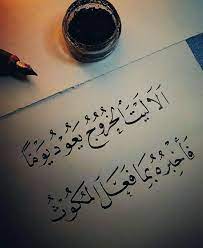 أَلَا لَيْتَ الْخُرُوجُ يَعُودُ يَوْمًا
فَأُخْبِرُهُ بِمَا فَعَلَ الْمُكُوثُ